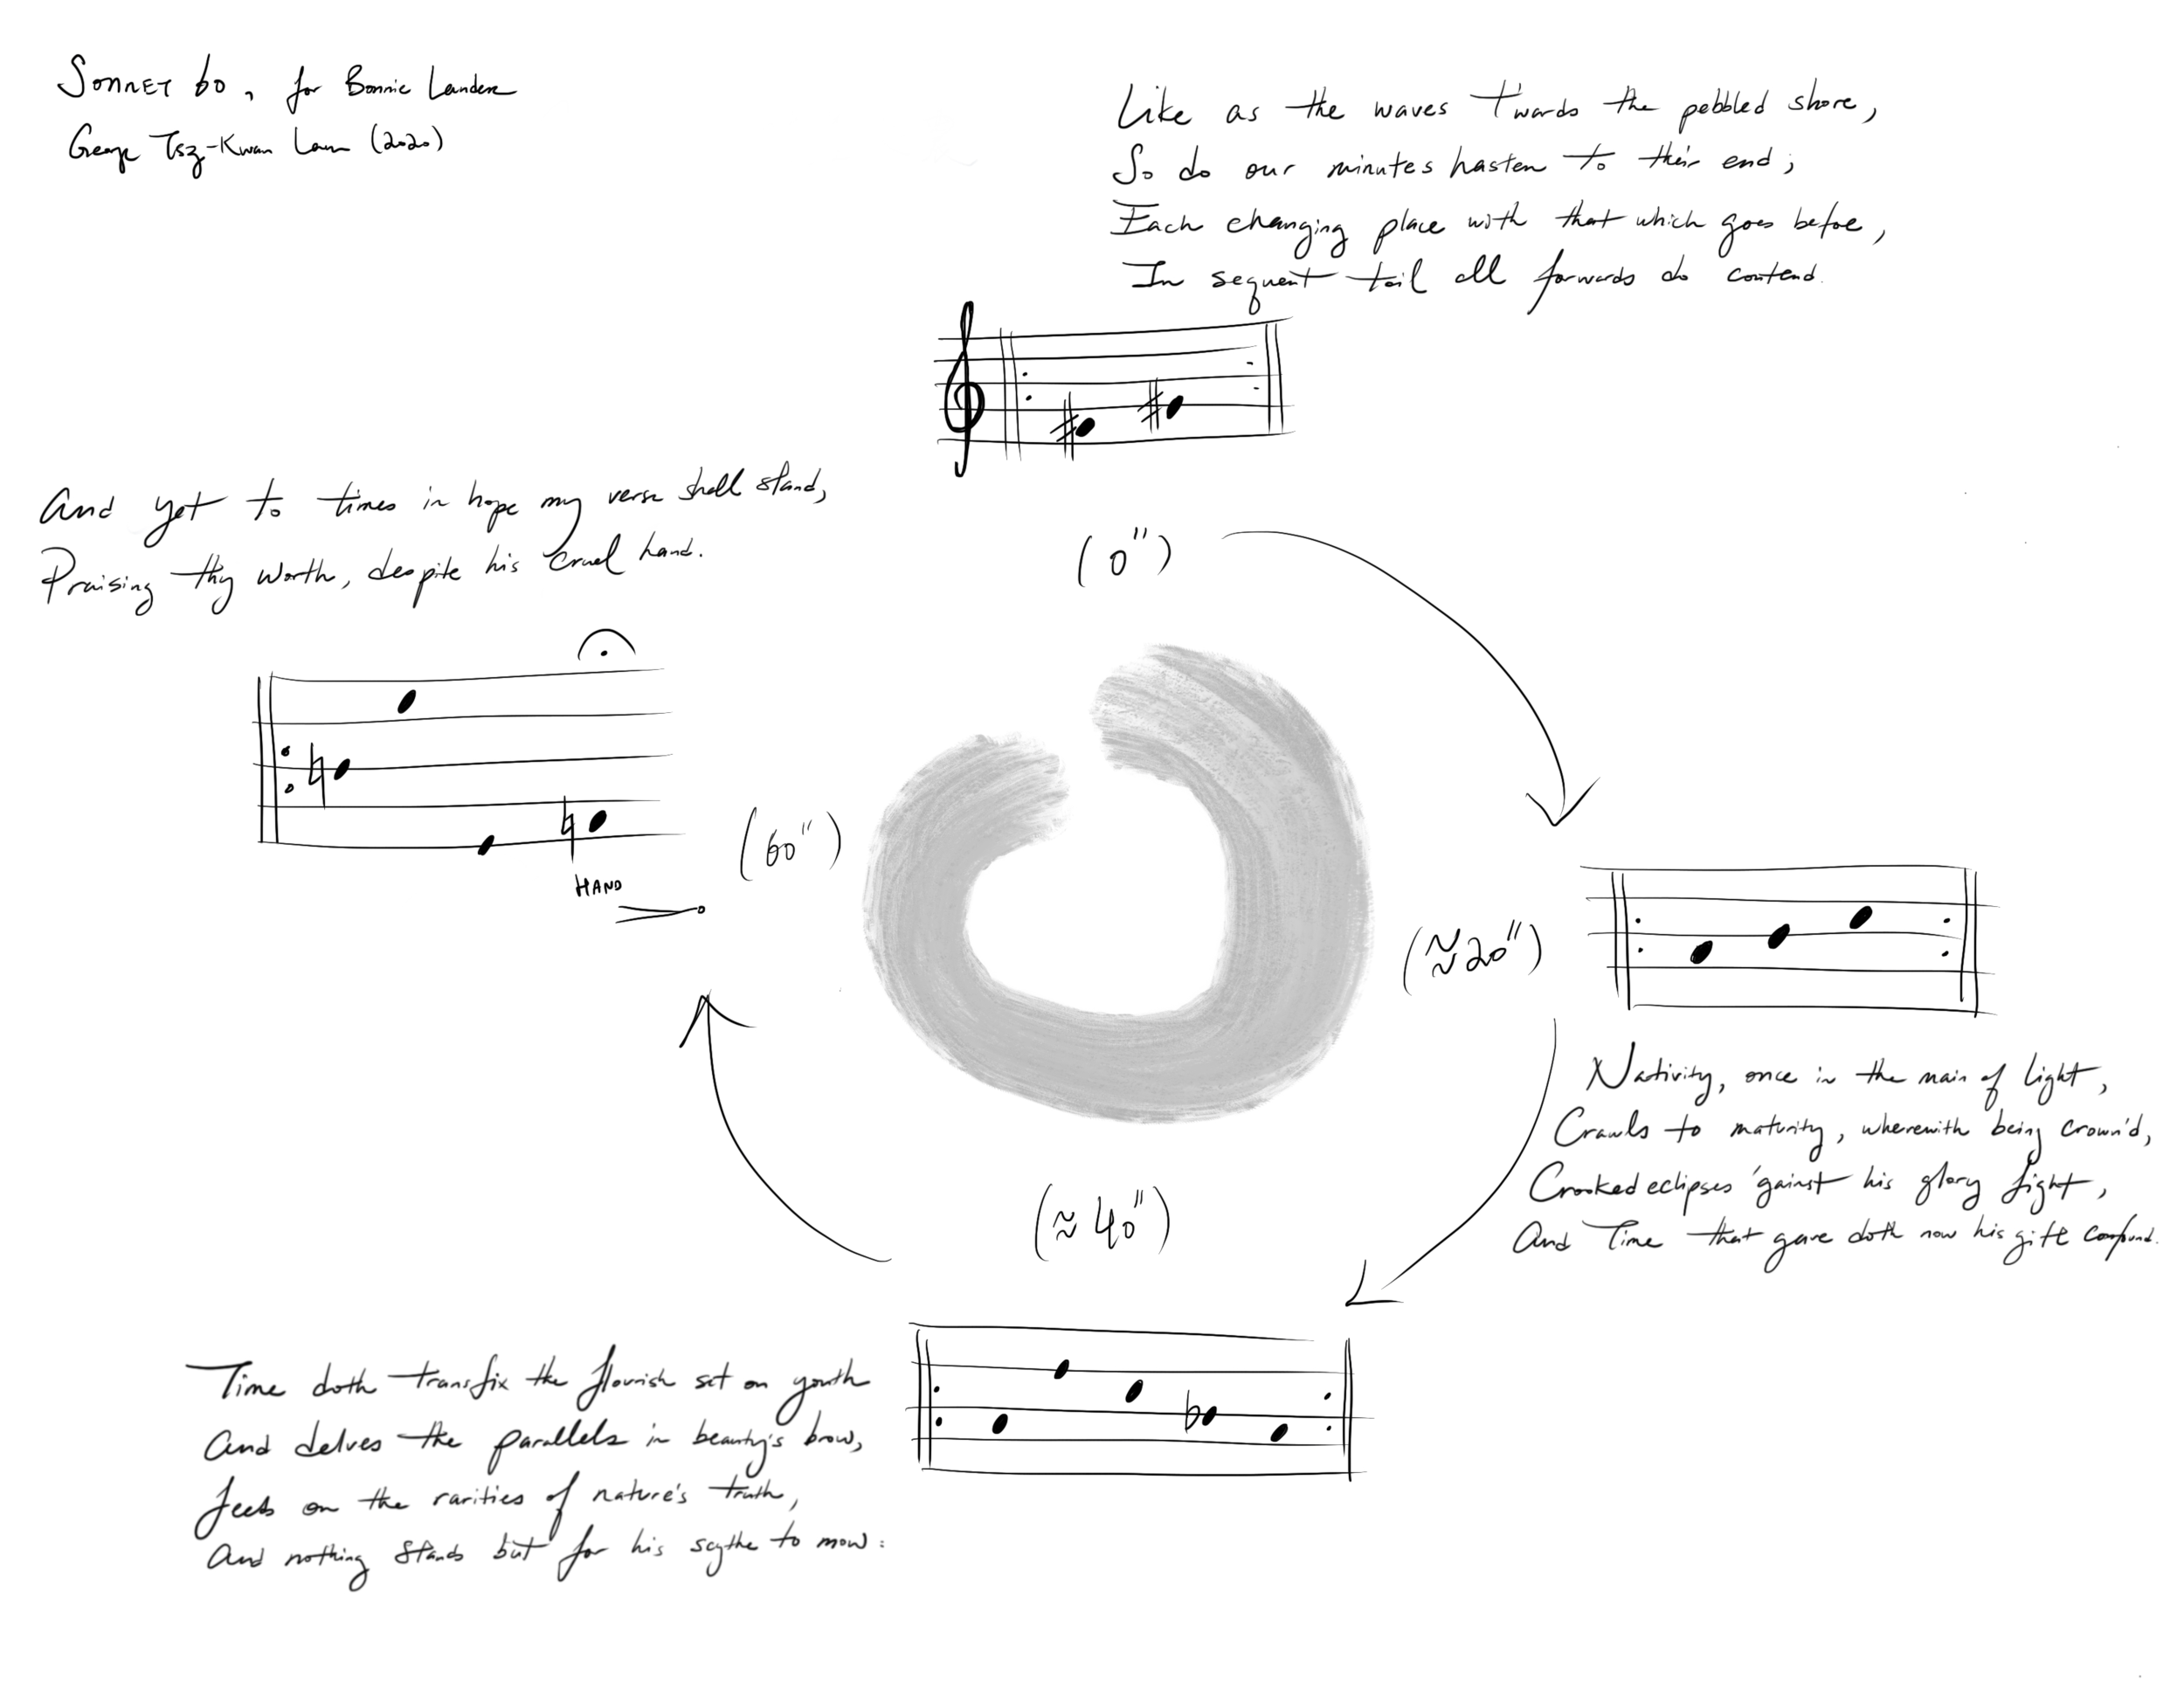 SONNET 60, for Bonnie Lander
George Tsz-Kwan Lam (2020)
Like as the waves t'wards the pebbled shore,
So do our minutes hasten to their end;
Each changing place with that which goes before,
In sequent toil all forwards do contend.
(0")
(≈20")
Nativity, once in the main of light,
Crawls to maturity, wherewith being crown'd,
Crooked eclipses 'gainst his glory fight,
And Time that gave doth now his gift confound.
(≈40")
Time doth transfix the flourish set on youth
And delves the parallels in beauty's brow,
feeds on the rarities of nature's truth,
And nothing stands but for his scythe to mow:
(60")
And yet to times in hope my verse shall stand,
Praising thy worth, despite his cruel hand.
HAND